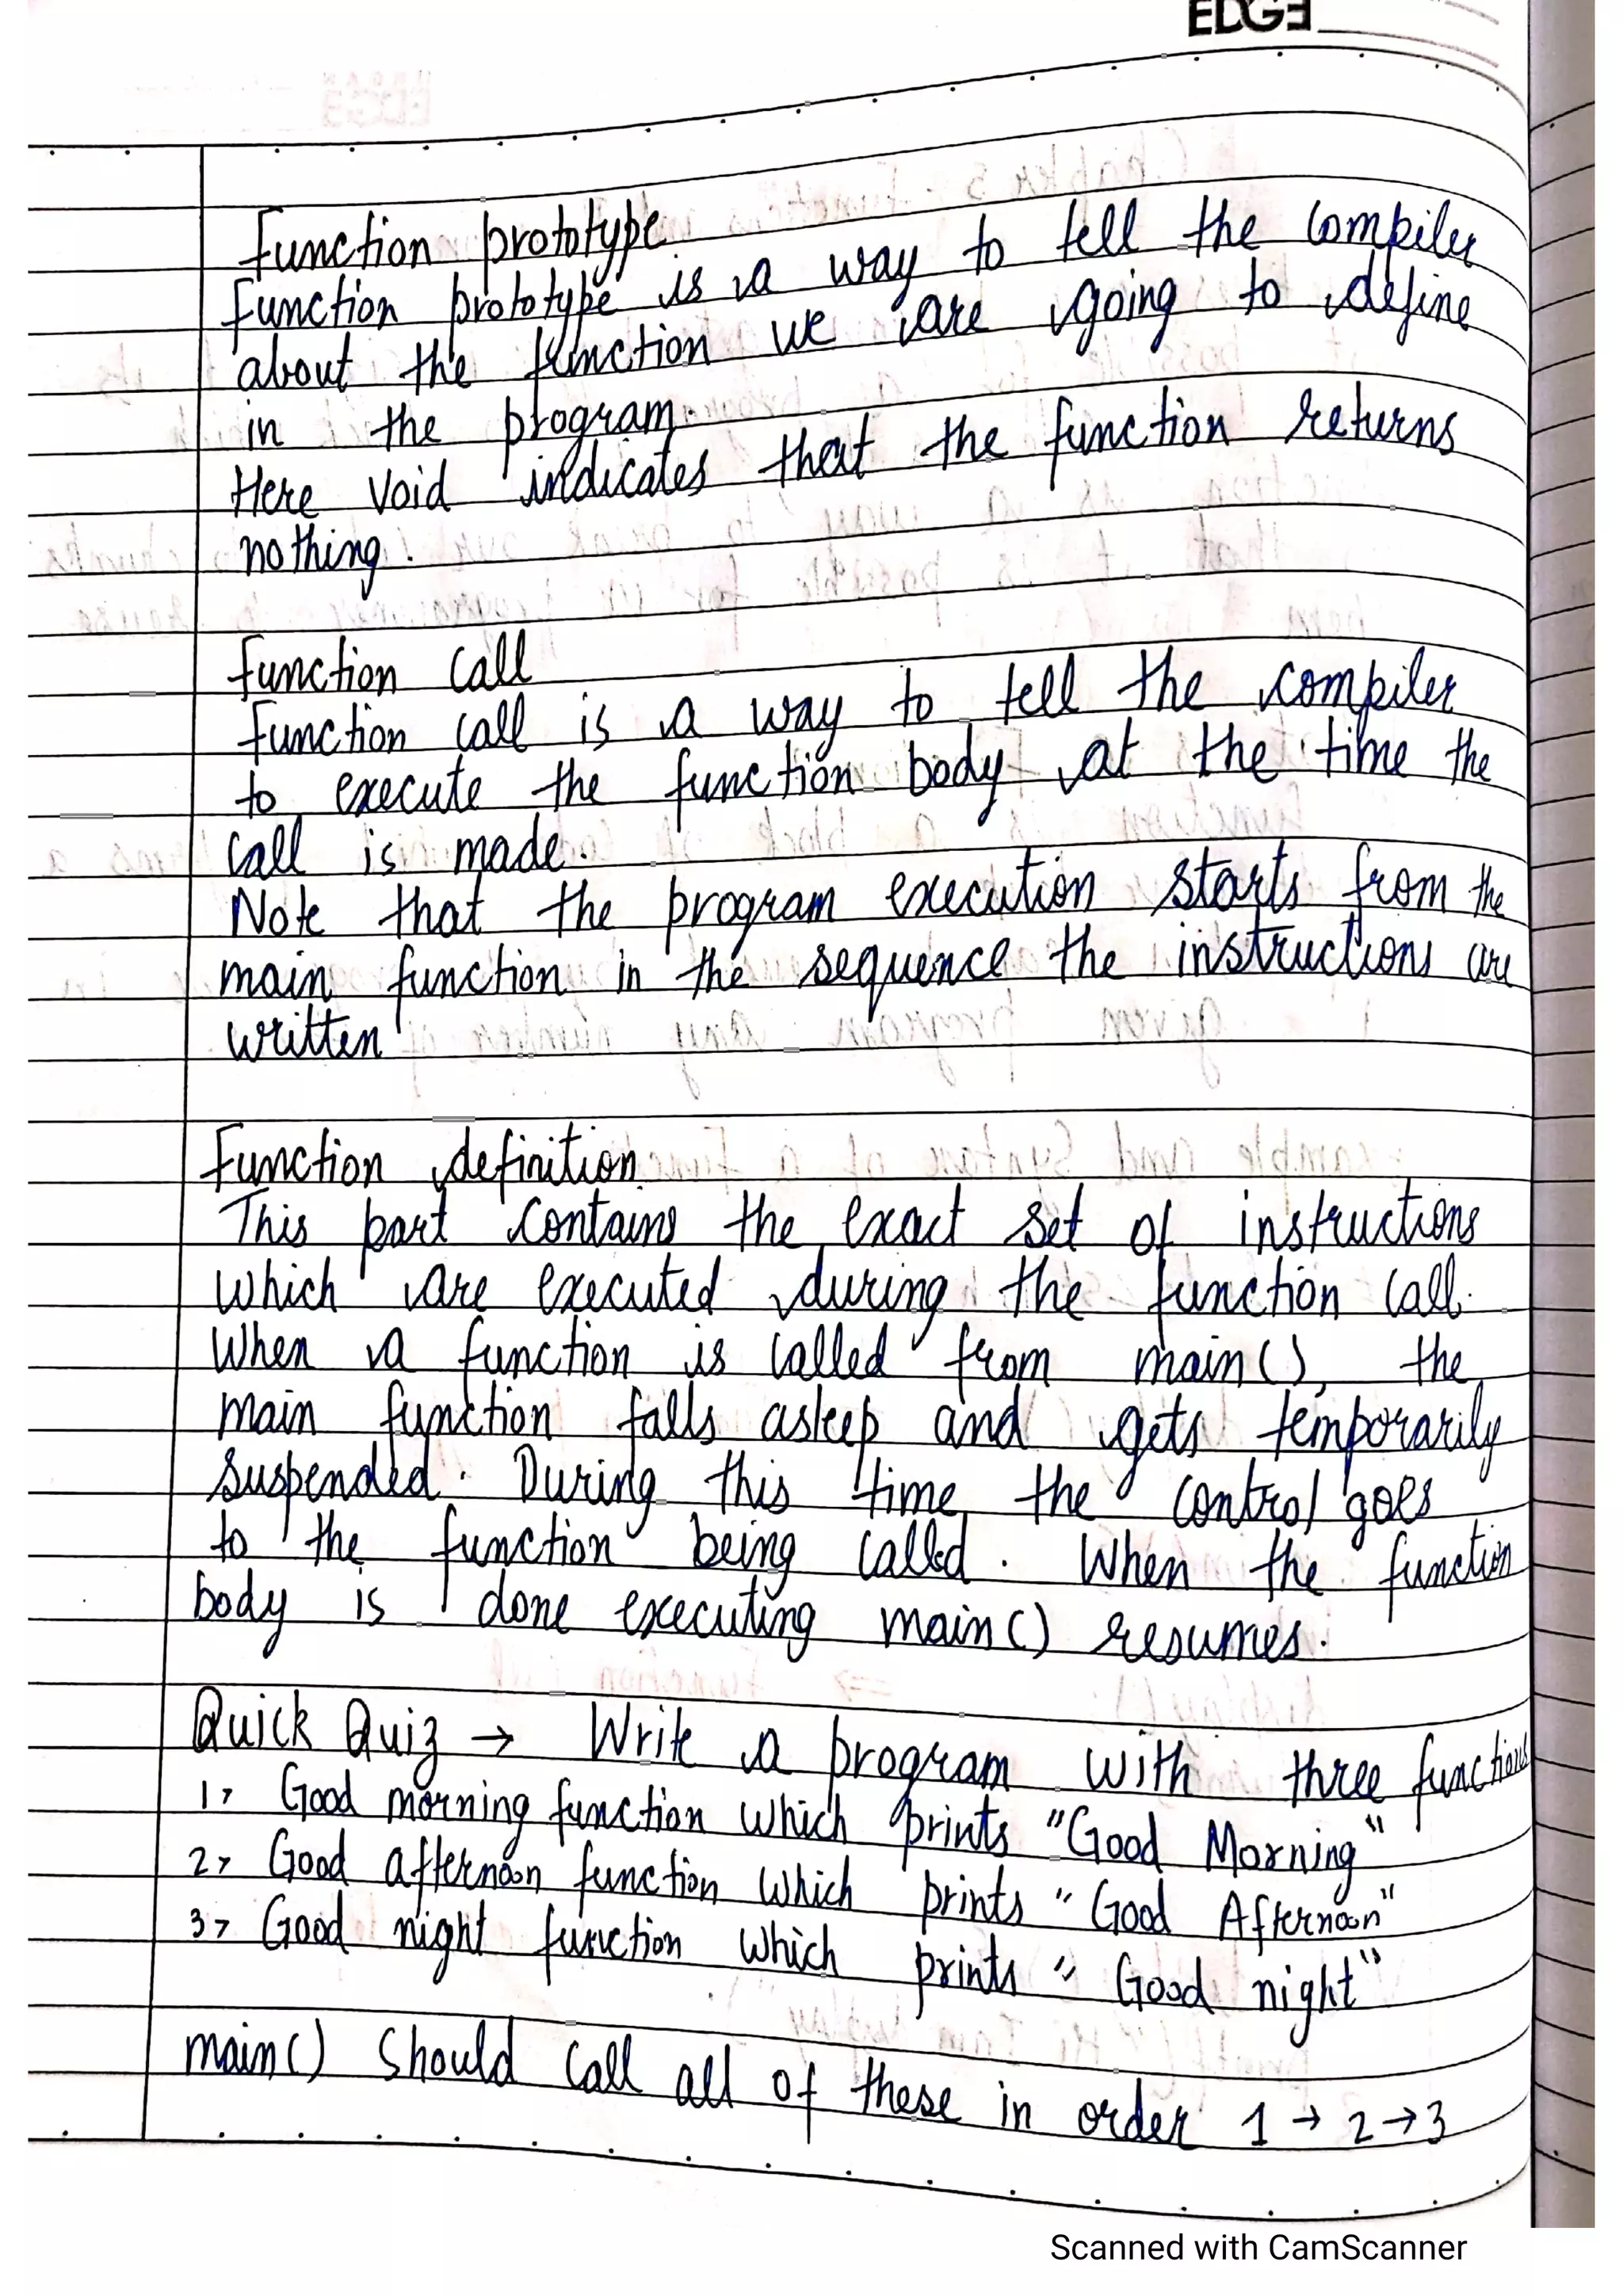 EDGE
Function prototype
Function prototype is a way to tell the compiler
about the function we are going to define
in the program.
Here void indicates that the function returns
nothing.
Function call
Function call is a way to tell the compiler
to execute the function body at the time the
call is made.
Note that the program execution starts from the
main function in the sequence the instructions are
written
Function definition
This part contains the exact set of instructions
which are executed during the function call.
When a function is called from main(), the
main function falls asleep and gets temporarily
suspended. During this time, the control goes
to the function being called. When the function
body is done executing main() resumes.
Quick Quiz → Write a program with three functions
1> Good morning function which prints "Good Morning"
2> Good afternoon function which prints "Good Afternoon"
3> Good night function which prints "Good night"
main() should call all of these in order 1 → 2 → 3
Scanned with CamScanner